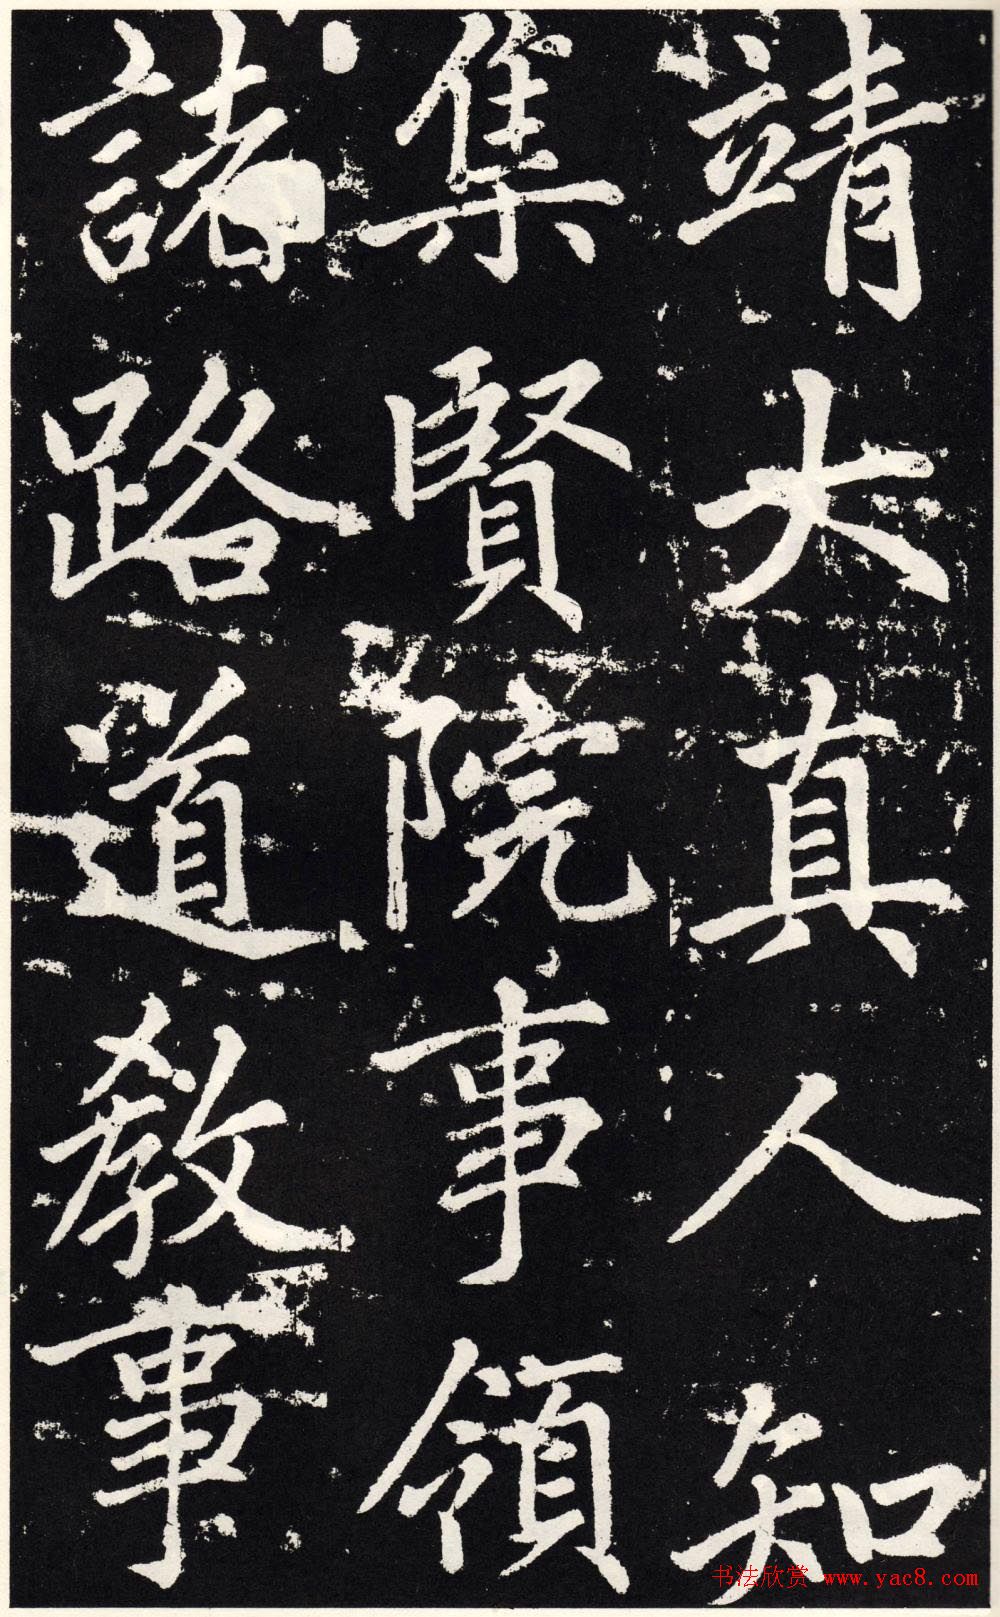 靖大真人知
集賢院事領
諸路道教事
书法欣赏 www.yac8.com